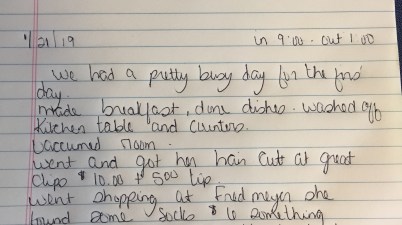 1/21/19 in 9:00 - out 1:00
we had a pretty busy day for the
day.
made breakfast, done dishes. washed off
kitchen table and counters.
vaccumed room.
went and got her hair cutt at great
clips $10.00 + 500 tip.
went shopping at Fred meyer she
found some socks $6 something